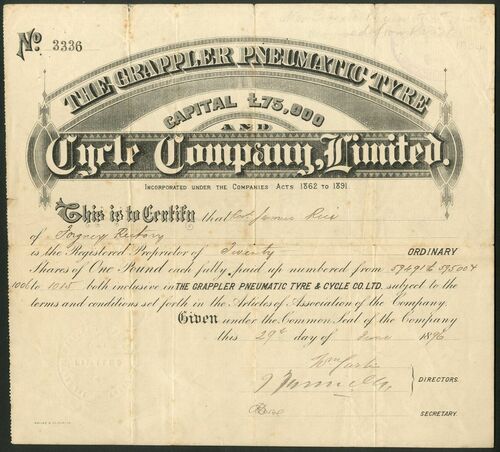 No. 3336
THE GRAPPLER PNEUMATIC TYRE
CAPITAL £75,000
AND
Cycle Company, Limited.
INCORPORATED UNDER THE COMPANIES ACTS 1862 TO 1891.
This is to Certify that James Rice
of Forgney Rectory
is the Registered Proprietor of Twenty ORDINARY
Shares of One Pound each fully paid up numbered from
to 1015 both inclusive in THE GRAPPLER PNEUMATIC TYRE & CYCLE CO. LTD. subject to the
terms and conditions set forth in the Articles of Association of the Company.
Given under the Common Seal of the Company
this 29th day of June 1896
DIRECTORS.
SECRETARY.